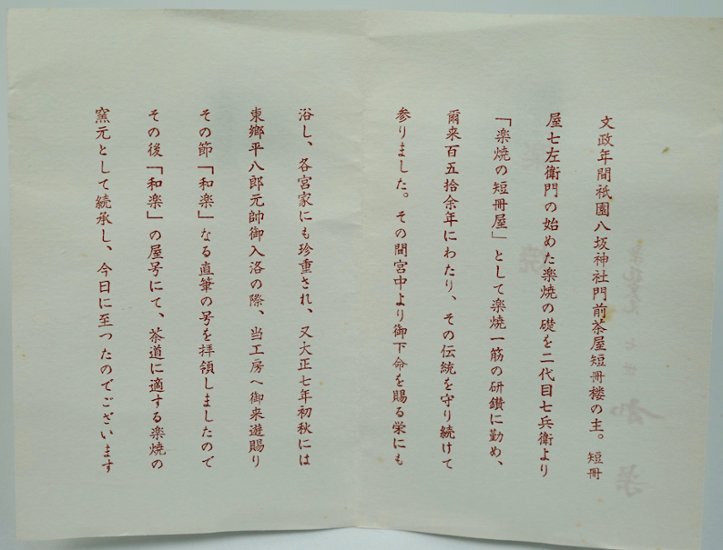 文政年間祇園八坂神社門前茶屋短冊楼の主。短冊
屋七左衛門の始めた楽焼の礎を二代目七兵衛より
「楽焼の短冊屋」として楽焼一筋の研鑚に勤め、
爾来百五拾余年にわたり、その伝統を守り続けて
参りました。その間宮中より御下命を賜る栄にも
浴し、各宮家にも珍重され、又大正七年初秋には
東郷平八郎元帥御入洛の際、当工房へ御来遊賜り
その節「和楽」なる直筆の号を拝領しましたので
その後「和楽」の屋号にて、茶道に適する楽焼の
窯元として続承し、今日に至つたのでございます